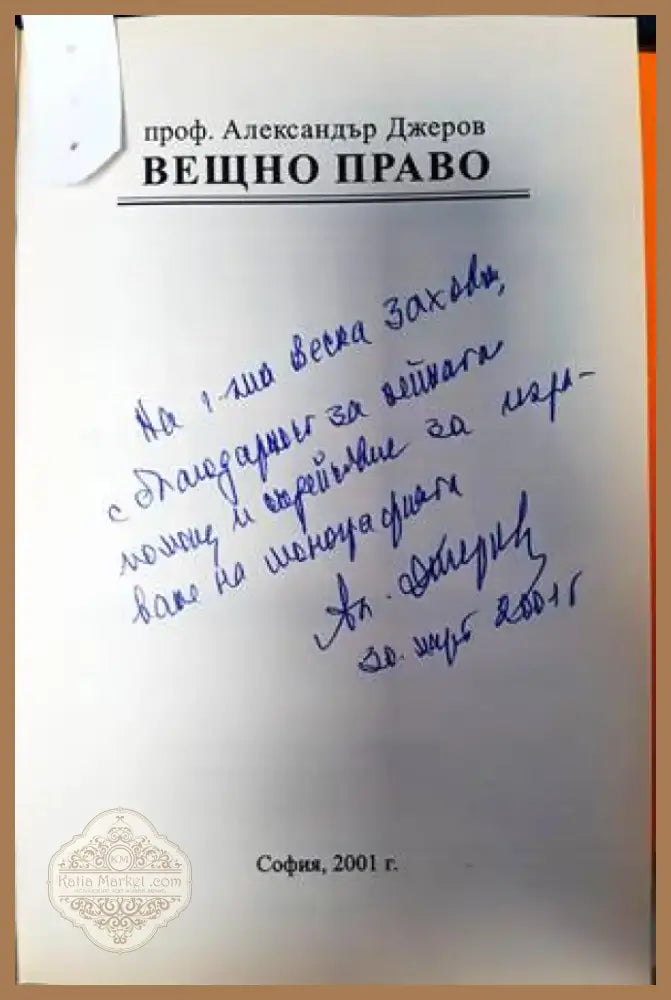 проф. Александър Джеров
ВЕЩНО ПРАВО
На г-жа Веска
с благодарност за нейната
помощ и съдействие за
ване на монографията
Ал. Джеров
30. март 2001 г
София, 2001 г.
KM
Katia Market .com